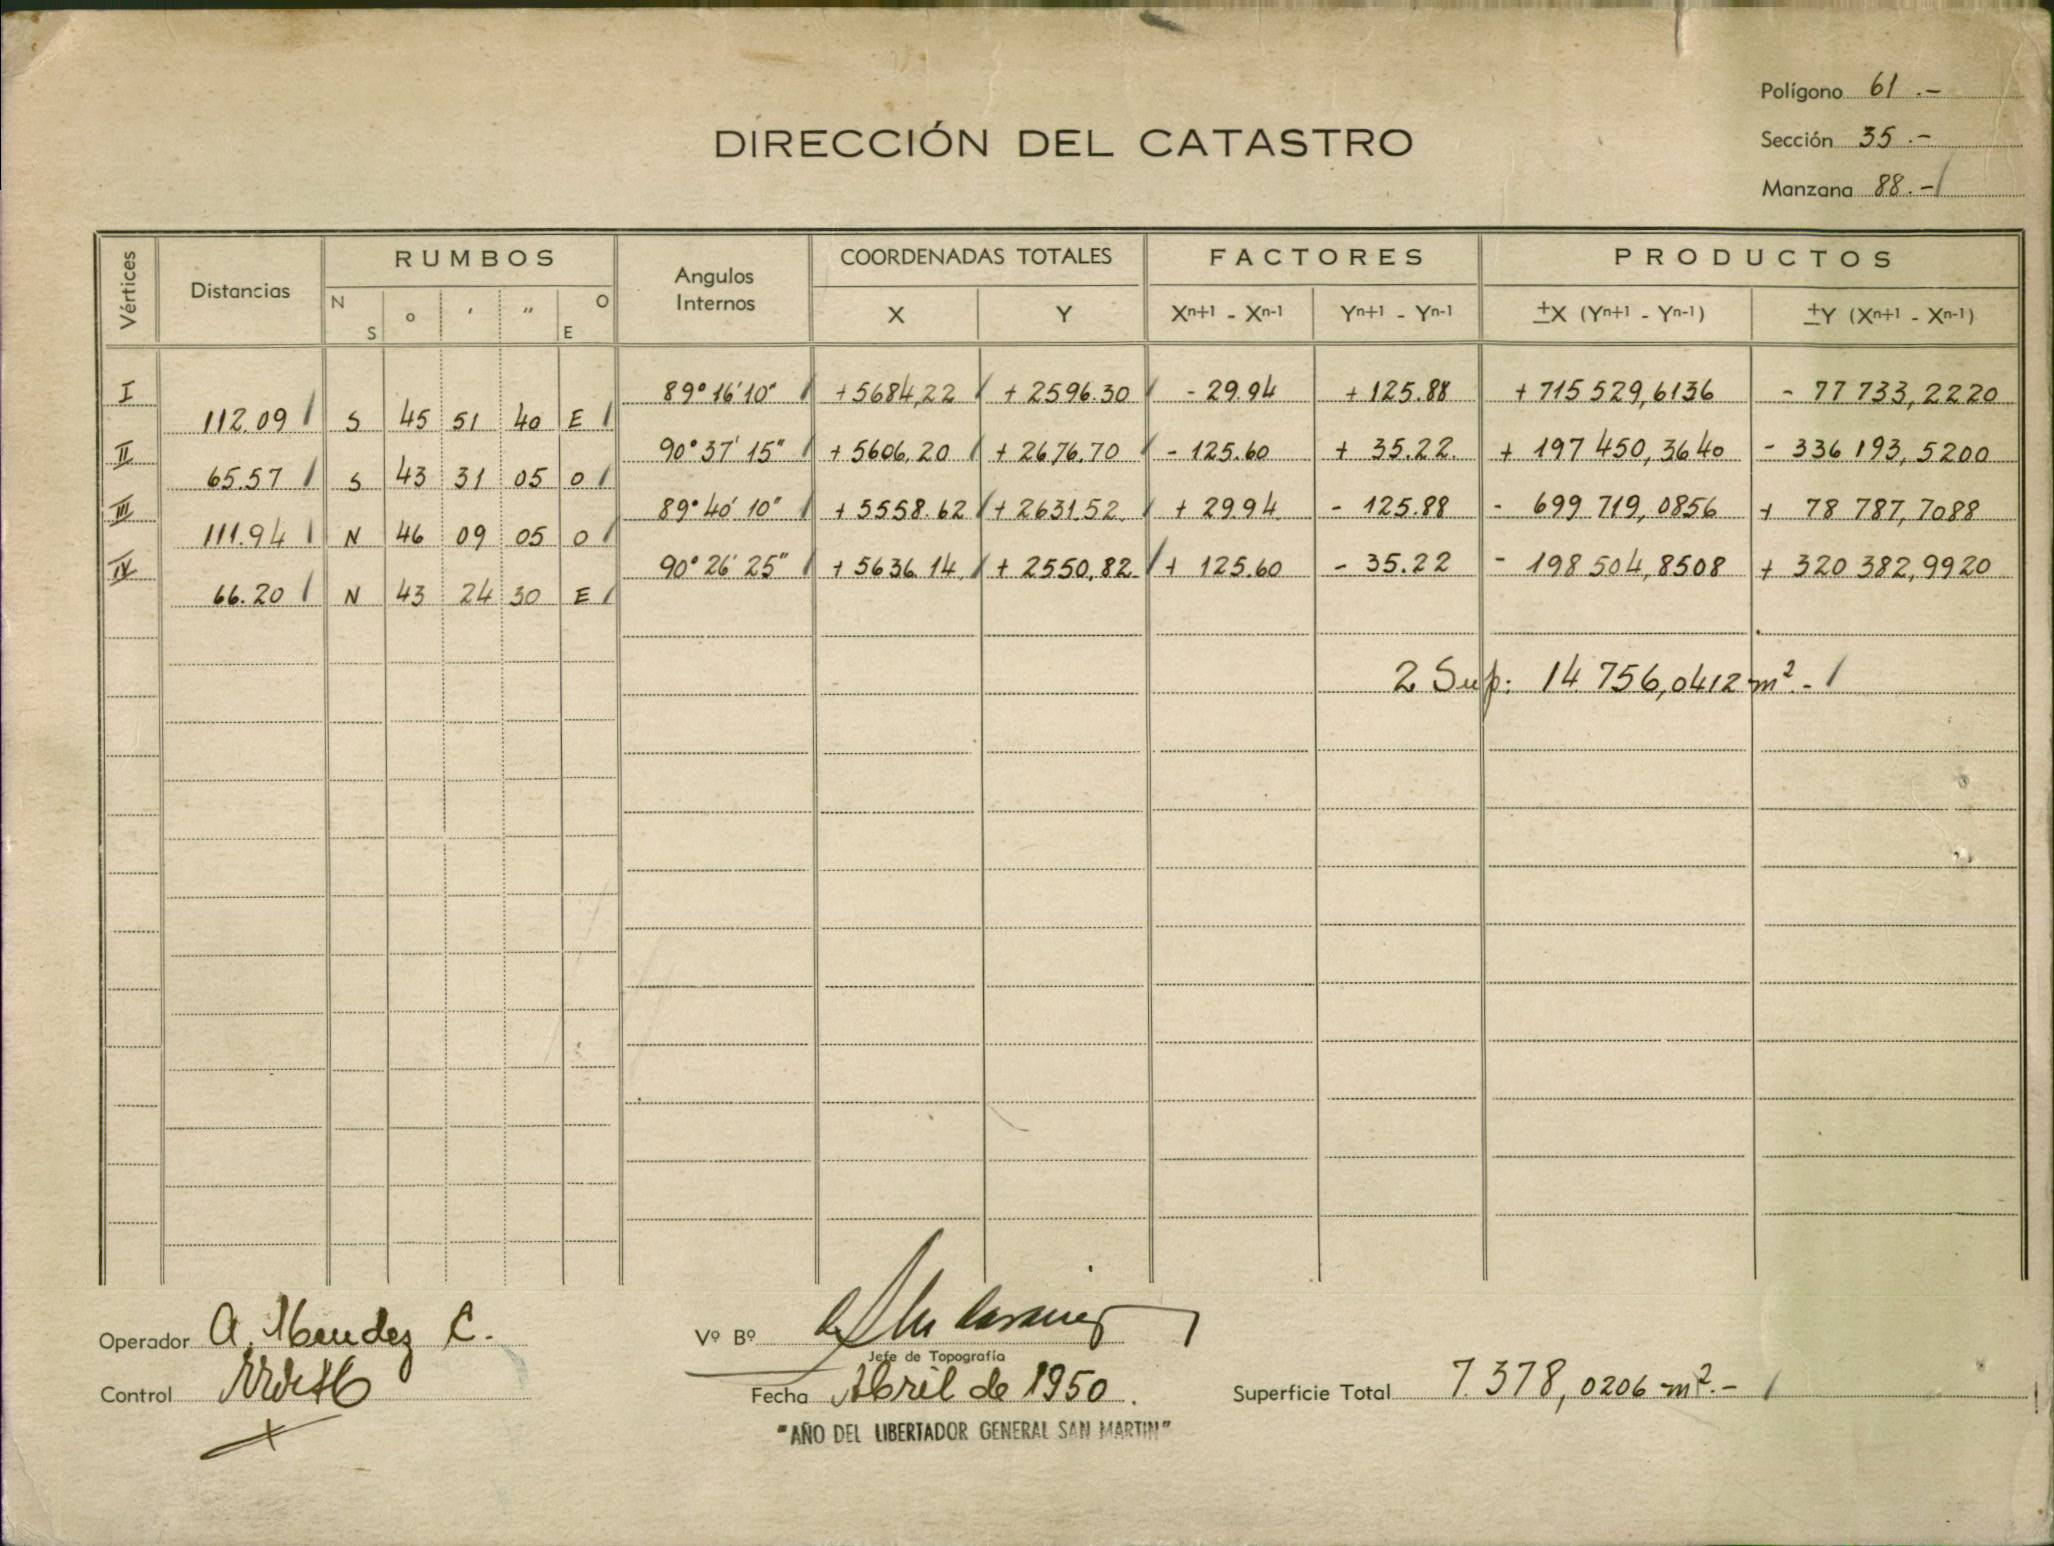 Polígono 61 .-
DIRECCIÓN DEL CATASTRO
Sección 35 .-
Manzana 88 .-
Vértices Distancias RUMBOS Angulos Internos COORDENADAS TOTALES FACTORES PRODUCTOS
N S ° ' " O E X Y Xn+1 - Xn-1 Yn+1 - Yn-1 ±X (Yn+1 - Yn-1) ±Y (Xn+1 - Xn-1)
I 89° 16' 10" +5684,22 + 2596.30 - 29.94 + 125.88 + 715 529,6136 - 77 733,2220
112.09 S 45 51 40 E
II 90° 37' 15" + 5606,20 + 2676,70 - 125.60 + 35.22. + 197 450,3640 - 336 193,5200
65.57 S 43 31 05 O
III 89° 40' 10" + 5558.62 + 2631.52 + 29.94 - 125.88 - 699 719,0856 + 78 787,7088
111.94 N 46 09 05 O
IV 90° 26' 25" + 5636.14 + 2550,82 + 125.60 - 35.22 - 198 504,8508 + 320 382,9920
66.20 N 43 24 30 E
2 Sup: 14 756,0412 m².-
Operador A. Mendez C.
Vº Bº
Jefe de Topografía
Control
Fecha Abril de 1950.
Superficie Total 7.378,0206 m².-
"AÑO DEL LIBERTADOR GENERAL SAN MARTIN"